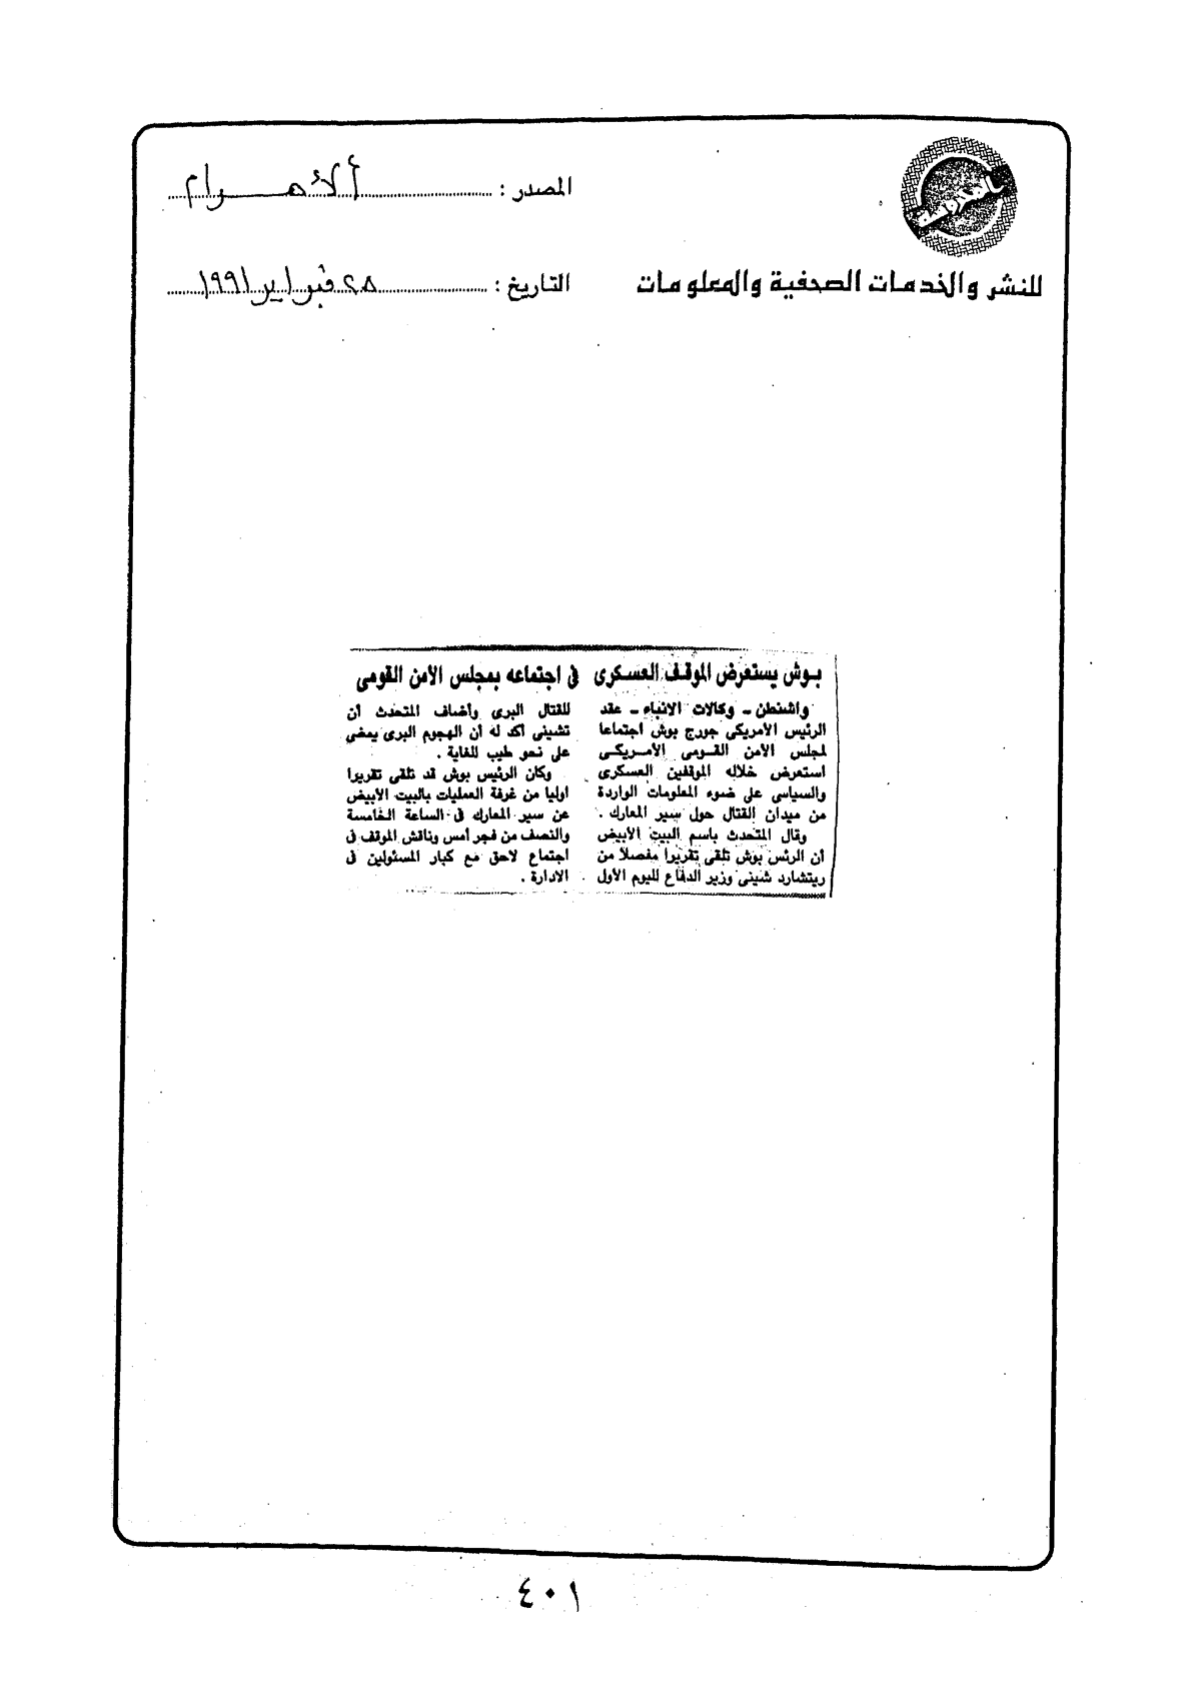 المصدر : الأهرام
للنشر والخدمات الصحفية والمعلومات
التاريخ : ٢٨ فبراير ١٩٩١
بوش يستعرض الموقف العسكرى فى اجتماعه بمجلس الأمن القومى
واشنطن ـ وكالات الانباء ـ عقد
الرئيس الأمريكى جورج بوش اجتماعا
لمجلس الأمن القومى الأمريكى
استعرض خلاله الموقفين العسكرى
والسياسى على ضوء المعلومات الواردة
من ميدان القتال حول سير المعارك .
وقال المتحدث باسم البيت الأبيض
أن الرئس بوش تلقى تقريرا مفصلا من
ريتشارد شينى وزير الدفاع لليوم الأول
للقتال البرى وأضاف المتحدث أن
تشينى اكد له أن الهجوم البرى يمضى
على نحو طيب للغاية .
وكان الرئيس بوش قد تلقى تقريرا
اوليا من غرفة العمليات بالبيت الأبيض
عن سير المعارك فى الساعة الخامسة
والنصف من فجر أمس وناقش الموقف فى
اجتماع لاحق مع كبار المسئولين فى
الادارة .
٤٠١